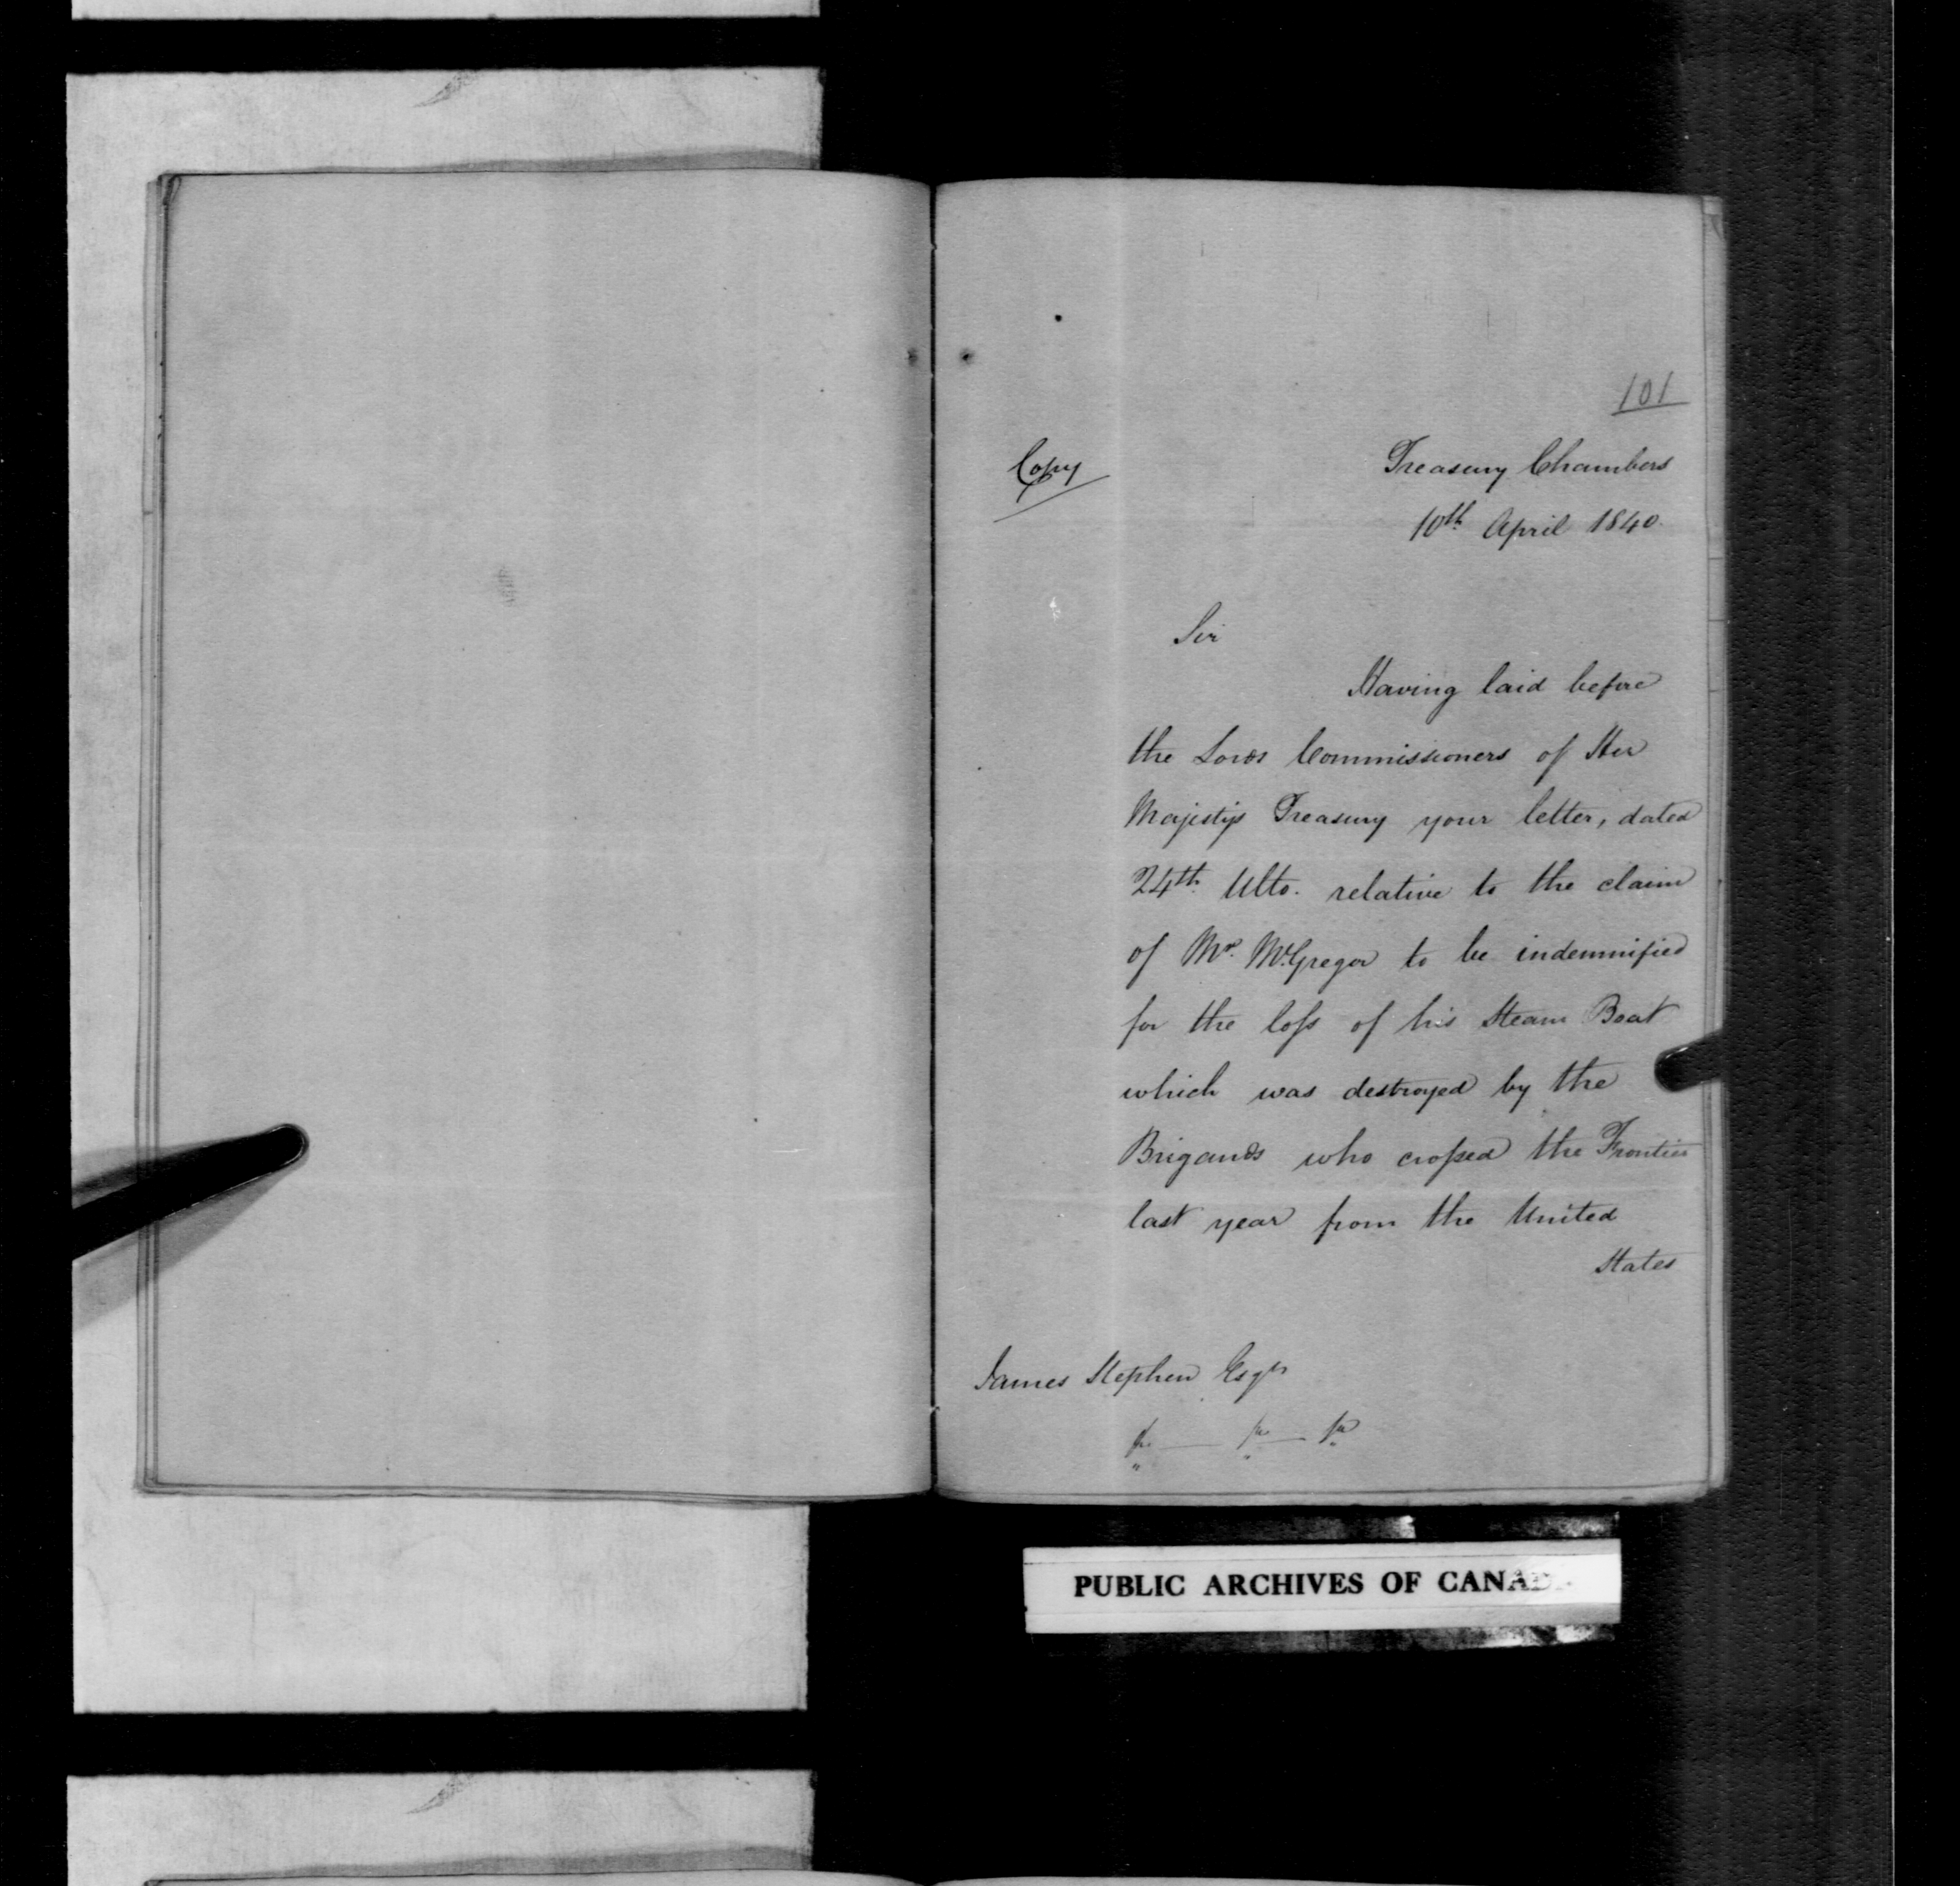 101
Copy
Treasury Chambers
10th April 1840.
Sir
Having laid before
the Lords Commissioners of Her
Majesty's Treasury your letter, dated
24th Ulto. relative to the claim
of Mr. McGregor to be indemnified
for the loss of his Steam Boat
which was destroyed by the
Brigands who crossed the Frontier
last year from the United
States
James Stephen Esqre
&c — &c — &c
PUBLIC ARCHIVES OF CANADA